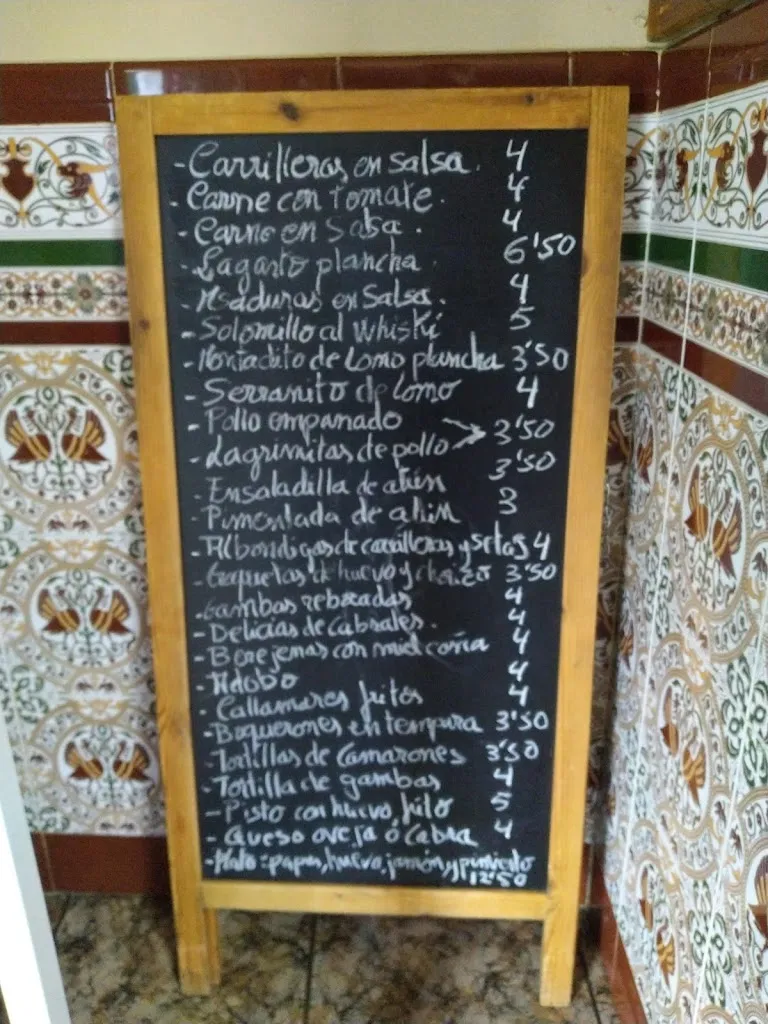 - Carrilleras en salsa. 4
- Carne con tomate. 4
- Carne en Salsa. 4
- Lagarto plancha. 6'50
- Asaduras en Salsa. 4
- Solomillo al Whiski 5
- Montadito de Lomo plancha 3'50
- Serranito de lomo 4
- Pollo empanado
- Lagrimitas de pollo 3'50
- Ensaladilla de atún 3'50
- Pimentada de atún 3
- Albondigas de carrilleras y setas 4
- Croquetas de huevo y chorizo 3'50
- Gambas rebozadas 4
- Delicias de Cabrales. 4
- Berejenas con miel caña 4
- Adobo 4
- Callamares fritos 4
- Boquerones en tempura 3'50
- Tortillas de Camarones 3'50
- Tortilla de gambas 4
- Pisto con huevo frito 5
- Queso oveja ó Cabra 4
- Plato: papas, huevo, jamón, y pimiento
12'50